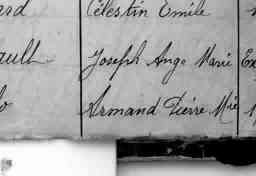 rd Célestin Emile
ault Joseph Ange Marie Ex
lo Armand Pierre Mie